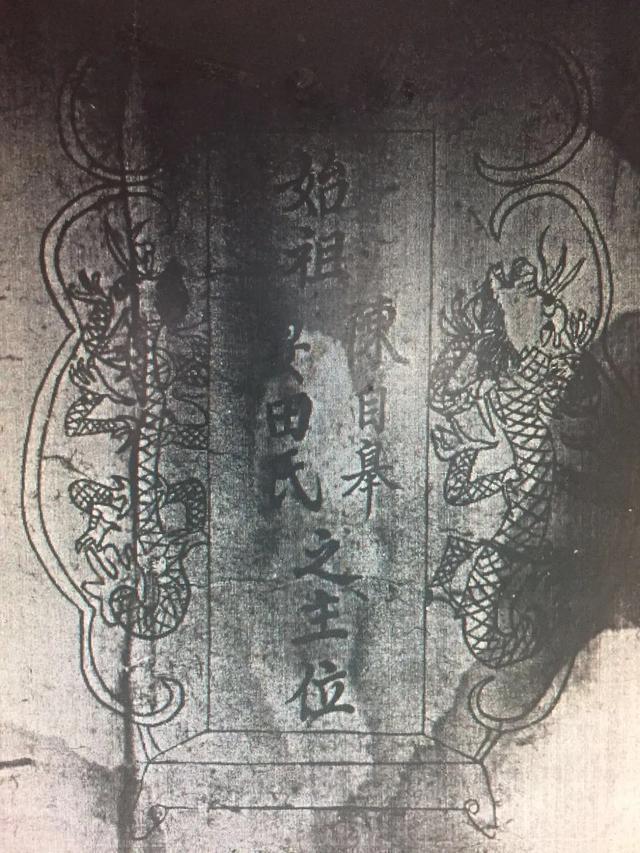 始祖
陳自
田氏
之主位